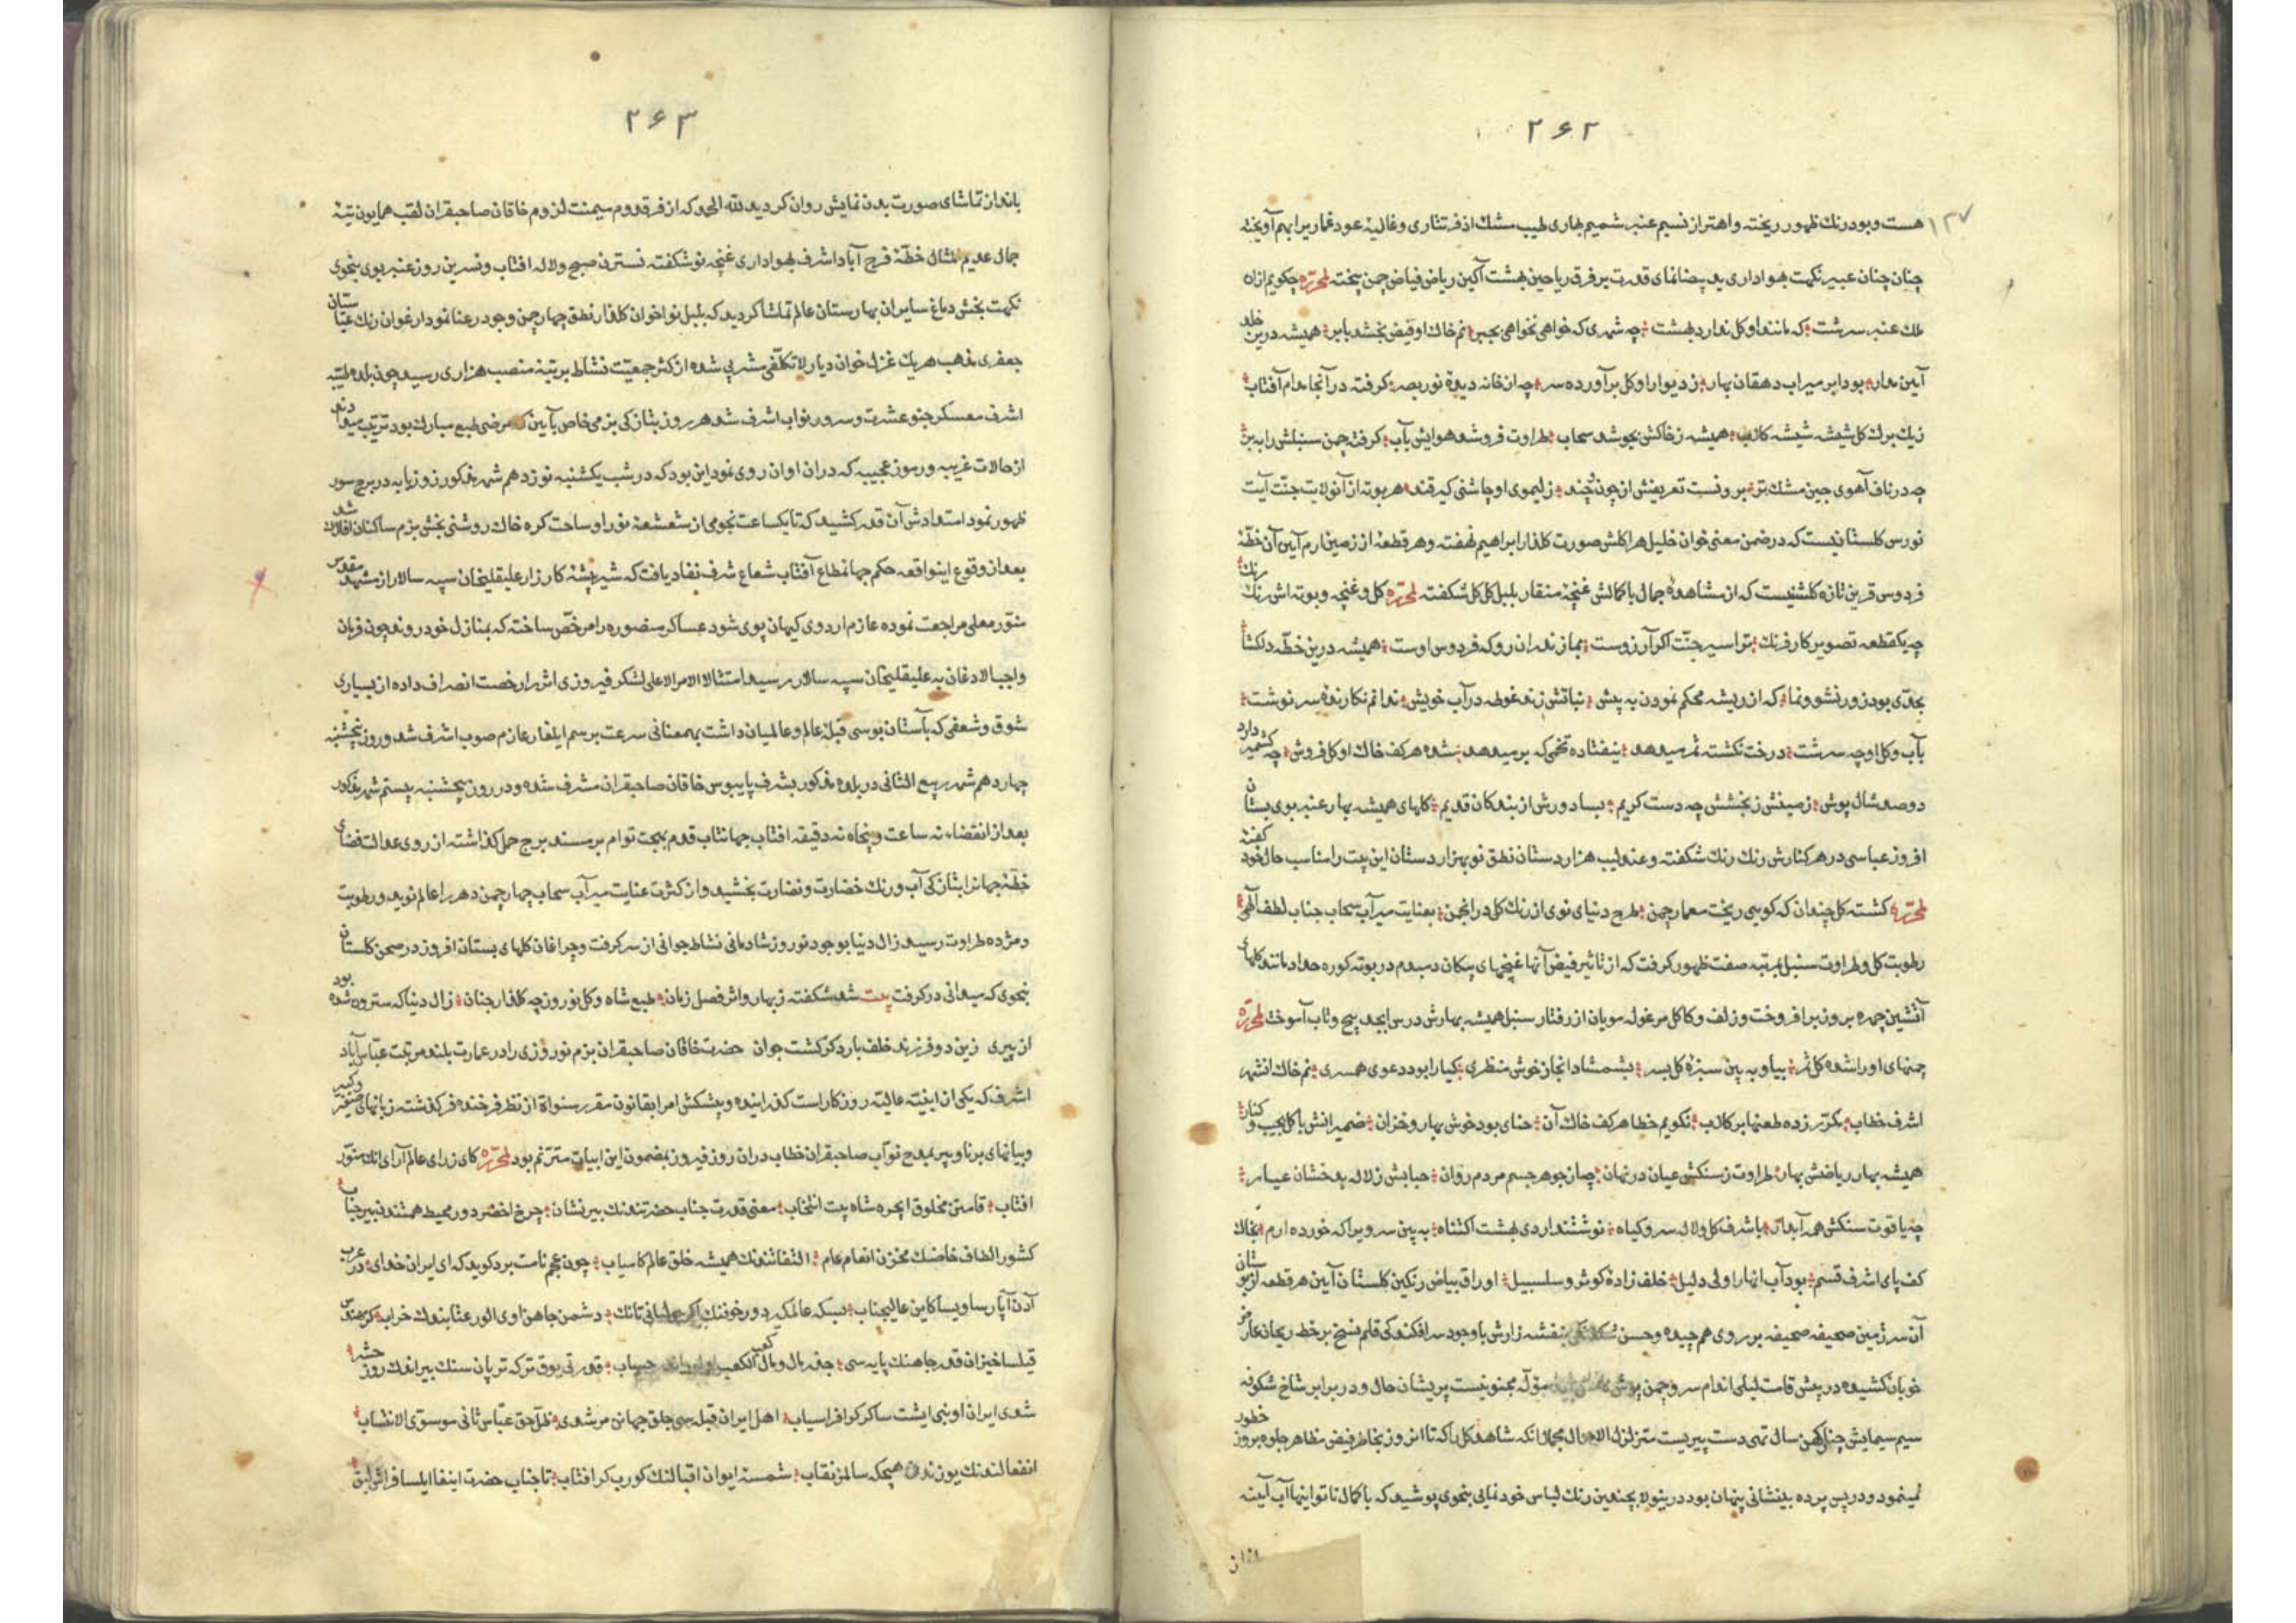 ۲۶۲
۱۳۷
هست و بود رنك ظهور ریخته و اهتزاز نسیم عنبر شمیم بهاری طیب مشك اذفر تتاری و غالیهٔ عود قماریرا بهم آویخته
چنان چنان عبیر نکهت بهواداری ید بیضانمای قدرت بر فرق ریاحین بهشت آکین ریاض فیاض چمن بیخته لمحرّره چکویم ازان
ملك عنبر سرشت که مانند او کل ندارد بهشت چه شهری که خواهی نخواهی بجبر نم خاك او فیض بخشد بابر همیشه درین خلد
آیین مدار بود ابر میراب دهقان بهار ز دیوار او کل برآورده سر چه از خانه دیدهٔ نور بصر کرفته در آنجا مدام آفتاب
ز یك برك کل شیشه شیشه کلاب همیشه ز خاکش بجوشد سحاب طراوت فروشد هوایش بآب کرفته چمن سنبلش را ببر
چه در ناف آهوی چین مشك تر برونست تعریفش از چون و چند ز لیموی او چاشنی کیر قند هر بوته از آنولایت جنّت آیت
نورس کلستانیست که در ضمن معنی خوان خلیل هر اکلش صورت کلذار ابراهیم نهفته و هر قطعهٔ از زمین ارم آیین آن خطّهٔ
فردوس قرین تازه کلشنیست که از مشاهدهٔ جمال با کمالش غنچهٔ منقار بلبل کل کل شکفته لمحرّره کل و غنچه و بوته اش رنك رنك
چه یکقطعه تصویر کار فرنك ترا سیر جنّت اکر آرزوست بمازندران رو که فردوس اوست همیشه درین خطّه دلکشا
بحدّی بود زور نشو و نما که از ریشه محکم نمودن به پیش نباتش زند غوطه در آب خویش ندانم نکارندهٔ سرنوشت
بآب و کل او چه سرشت درخت نکشته ثمر میدهد نیفتاده تخمی که بر میدهد شده هر کف خاك او کلفروش چه کشمیر دارد
دو صد شال پوش زمینش ز بخشش چه دست کریم بسا دورش از بندکان قدیم کلهای همیشه بهار عنبر بوی بستان
افروز عباسی در هر کنارش رنك رنك شکفته و عندلیب هزاردستان نطق نو بهزار دستان این بیت را مناسب حال خود کفته
لمحرّره کشته کل چندان که کوسی ریخت معمار چمن طرح دنیای نوی از رنك کل در انجمن بعنایت میرآب سحاب جناب لطف آلهی
رطوبت کل و طراوت سنبل بمرتبه صفت ظهور کرفت که از تاثیر فیض آنها غنچهای پیکان دمبدم در بوته کوره حداد مانند کلهای
آتشین چهره بروز برافروخت و زلف و کاکل مرغوله مویان از رفتار سنبل همیشه بهارش درس ابجد پیچ و تاب آموخت لمحرّره
چمنهای او را شده کل ثمر بیا و به بین سبزهٔ کل بسر بشمشاد انجا ز خوش منظری کیا را بود دعوی همسری نم خاك انشهر
اشرف خطاب مکرّر زده طعنها بر کلاب نکویم خطا هر کف خاك آن حنای بود خوش بهار و خزان ضمیرانش با کل بجیب و کنار
همیشه بهار ریاضش بهار طراوت ز سنکش عیان در نهان چه از جوهر جسم مردم روان حبابش ز لاله بدخشان عیار
چه یاقوت سنکش همه آبدار باشرف کل و لاله سرو کیاه نوشتند اردی بهشت اکتناه به بین سرو یرا که خورده ارم بخاك
کف پای اشرف قسم بود آب انهار اولی دلیل خلف زادهٔ کوثر و سلسبیل اوراق بیاض رنکین کلستان آیین هر قطعه از بوستان
آن سرزمین صحیفه صحیفه بر روی هم چیده و حسن بنفشه زارش باوجود سرافکندکی قلم نسخ بر خط ریحان عارض
خوبان کشیده در پیش قامت لیلی اندام سرو چمن مولّه مجنونیست پریشان حال و در برابر شاخ شکوفه
سیم سیمایش چنار کهن سال تهی دست پیریست متزلزل الاحوال مجملا انکه شاهد کل را که تا امروز بخاطر فیض مظاهر جلوه بروز خطور
نمینمود و در پس پرده بینشانی پنهان بود درینولا بچندین رنك لباس خودنمایی بنحوی پوشید که با کمال ناتوانیها آب آینه
۲۶۳
بانداز تماشای صورت بدن نمایش روان کردید لله الحمد که از فرّ قدوم میمنت لزوم خاقان صاحبقران لقب همایون رتبه
جمال عدیم المثال خطّهٔ فرح آباد اشرف بهواداری غنچه نوشکفته نسترن صبح و لاله افتاب و نسرین روز عنبر بوی بنحوی
نکهت بخش دماغ سایران بهارستان عالم تماشا کردید که بلبل نواخوان کلذار نطق چهار چمن وجود رعنا نمودار غوان رنك عبّاستان
جعفری مذهب هریك غزل خوان دیار لاتکلّفی مشربی شده از کثر جمعیّت نشاط برتبهٔ منصب هزاری رسید چون بلده طیّبه
اشرف معسکر جنو عشرت و سرور نواب اشرف شد هر روز بتازکی بزمی خاص بآیین که مرضی طبع مبارك بود ترتیب میدادند
از حالات غریبه و رموز عجیبه که دران اوان روی نمود این بود که در شب یکشنبه نوزدهم شهر مذکور زوزبابه در برج سور
ظهور نمود امتدادش آن قدر کشید که تا یکساعت نجومی از شعشعهٔ نور او ساحت کره خاك روشنی بخش بزم ساکنان افلاك شد
بعد از وقوع اینواقعه حکم جهانمطاع آفتاب شعاع شرف نفاد یافت که شیر بیشهٔ کارزار علیقلیخان سپه سالار از مشهد مقدّس
منوّر معلی مراجعت نموده عازم اردوی کیهان پوی شود عساکر منصوره را مرخّص ساخته که بمنازل خود روند چون فرمان
واجب الاذعان به علیقلیخان سپه سالار رسید امتثالا الامر الاعلی لشکر فیروزی اثر را رخصت انصراف داده از بسیاری
شوق و شعفی که بآستان بوسی قبلهٔ عالم و عالمیان داشت بهمعنانی سرعت برسم ایلغار عازم صوب اشرف شد و روز پنجشنبه
چهاردهم شهر ربیع الثانی در بلده مذکور بشرف پایبوس خاقان صاحبقران مشرف شده و در روز پنجشنبه بیستم شهر مذکور
بعد از انقضاء نه ساعت و پنجاه نه دقیقه افتاب جهانتاب قدم بهجت توام بر مسند برج حمل کذاشته از روی عدالت فضای
خطّهٔ جهانرا بتازکی آب و رنك خضارت و نضارت بخشید و از کثرت عنایت میرآب سحاب چهار چمن دهر را عالم نوید و رطوبت
و مژده طراوت رسید زال دنیا بوجود نوروز شادمانی نشاط جوانی از سر کرفت و چراغان کلهای بستان افروز در صحن کلستان
بنحوی که میدانی در کرفت بیت شد شکفته ز بهار و اثر فصل زمان طبع شاه و کل نوروز چه کلذار جنان زال دنیا که سترون شده بود
از پیری زین دو فرزند خلف بار دکر کشت جوان حضرت خاقان صاحبقران بزم نوروزی را در عمارت بلند مرتبت عبّاس آباد
اشرف که یکی از ابنیّه عالیّه روزکار است کذرانیده و پیشکش امرا بقانون مقرر سنواة از نظر فرخنده فر کذشته زبانهای صغیر و کبیر
و بیانهای برنا و پیر بمدح نوّاب صاحبقران خطاب دران روز فیروز بمضمون این ابیات مترنّم بود لمحرّره کای ز رای عالم آرای انك منوّر
افتاب قامتن مخلوق ایچره شاه بیت انتخاب معنی قدرت جناب حضرتندنك بیر نشان چرخ اخضر دور محیط همتندن بیر حباب
کشور الطاف خاصك مخزن انعام عام التفاتندنك همیشه خلق عالم کامیاب چون عجم نامت برد کوید که ای ایران خدای در عرب
دشمن جاهن اوی الور عتابندك خراب
قیلسا خیزان قدر جاهنك پایه سی
شدی ایران او نبی ایشت ساکر کر افراسیاب اهل ایران قبله سی خلق جهانن مرشدی ظلّ حق عبّاس ثانی موسوّی الانتساب
شمسهٔ ایوان اقبالنك کورب کر افتاب تا جناب حضرت